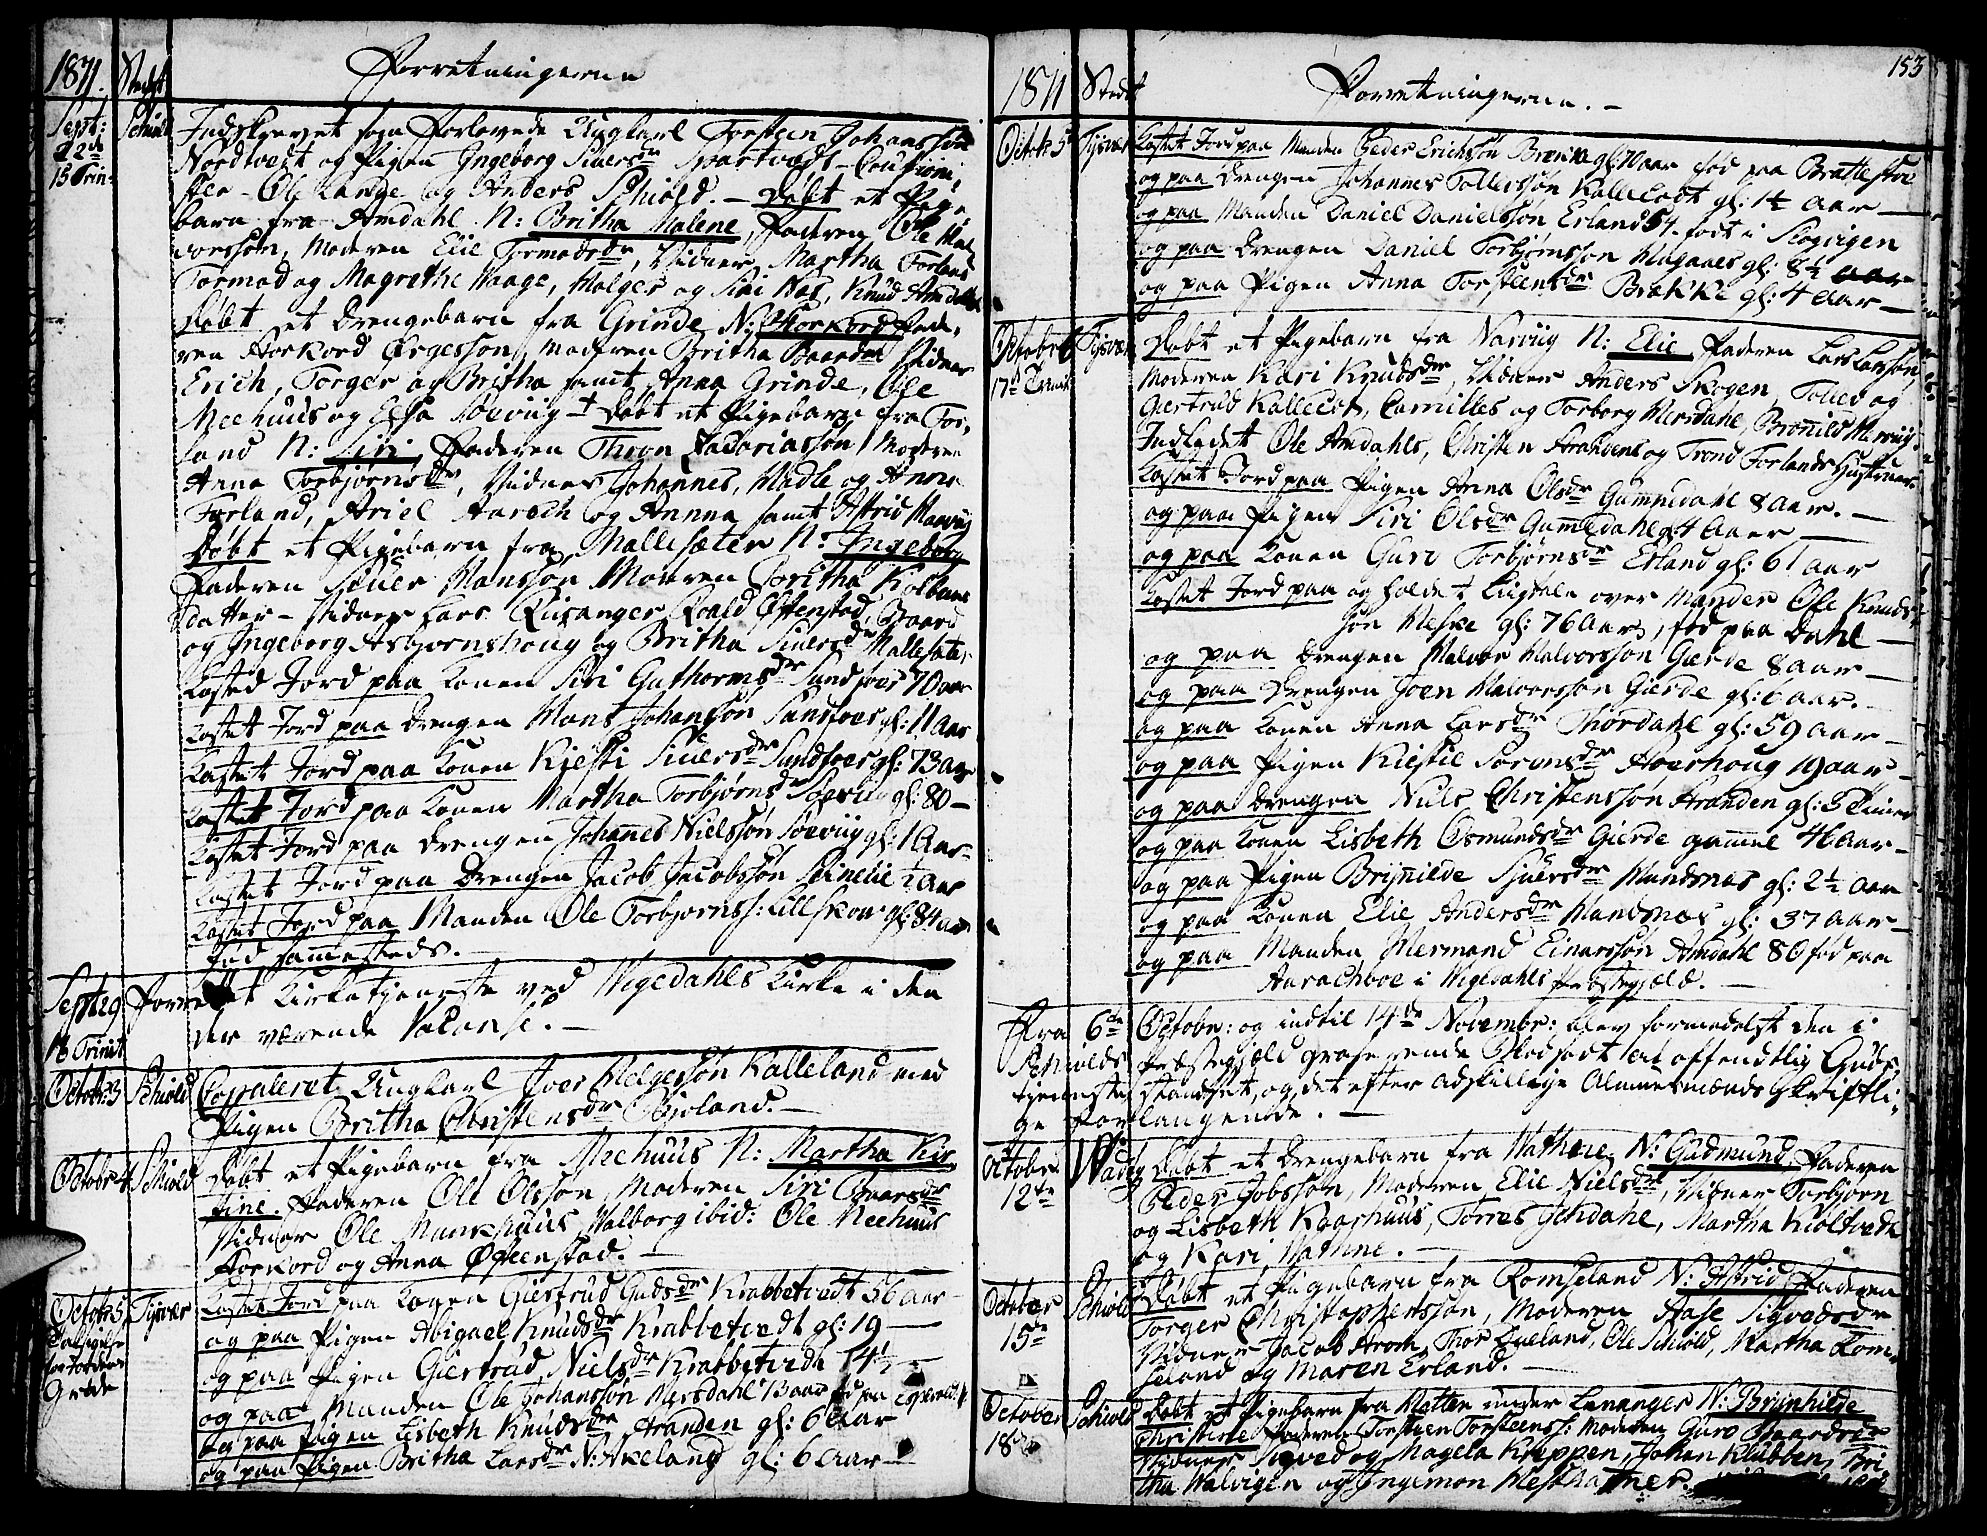 1811. Stedet Forretningerne
Sept: Schiold Indskrevet som Forlovede Ungkarl Torsteen Johannssøn
22de Nordtvedt og Pigen Ingeborg Siversdr Spartvedt – Cautioni,
15 Trin: ster – Ole Lande og Anders Schiold. – Døbt et Pige
barn fra Amdahl N: Britha Malene, Faderen Ole Hal
vorssøn, Moderen Elie Tormodsdr, Vidner Martha Forland
Tormod og Magrethe Waage, Holger og Siri Næs, Knud Amdahl
Døbt et Drengebarn fra Grinde N: Horkord Fade,
ren Horkord Ørgessøn, Moderen Britha Baardsdr Vidner
Erich, Torger og Britha samt Anna Grinde, Ole
Meehuus og Elsa Søeviig + Døbt et Pigebarn fra For,
land N: Siri, Faderen Thron Zacariassøn Moderen
Anna Torbjørnsdr, Vidner Johannes, Madle og Anna
Forland, Ariel Aarech og Annna samt Astrid Marviig
Døbt et Pigebarn fra Mallesæter N: Ingeborg
Faderen Siver Monssøn Moderen Britha Kolbens
datter – Vidner Lars Riisanger Roald Øffenstad, Baard
og Ingeborg Asbjørnshoug og Britha Siversdr Mallesæter
Kasted Jord paa Konen Siri Guthormsdr Sundfoer 70 aar
Kastet Jord paa Drengen Mons Johanssøn Sundfoer gl: 11 Aar
Kastet Jord paa Konen Kiesti Siversdr Sundfoer gl: 73 aar
Kastet Jord paa Konen Martha Torbjørnsdr Søeviig gl: 80 –
Kastet Jord paa Drengen Johannes Nielssøn Søeviig gl: 1 Aar
Kastet Jord paa Drengen Jacob Jacobssøn ½ Aar
Kastet Jord paa Manden Ole Torbjørnss: Lillskow gl: 84 aar
fød sammesteds. –
Sept 29 Forrettet Kirketjeneste ved Wigedahls Kirke i den
der værende Vacanse. –
16 Trinit
Octobr: 3 Schiold Copuleret Ungkarl Joer Helgessøn Kalleland med
Pigen Britha Christensdr Bjoland. –
Octobr 4 Schiold Døbt et Pigebarn fra Meehuus N: Martha Kir
stine. Faderen Ole Olssøn, Moderen Siri Baarsdr
Vidner Ole Munkhuus, Walborg ibid: Ole Meehuus
Horkord og Anna Øffenstad. –
Octobr 5 Tysvær Kastet Jord paa Konen Giertrud Gudsdr Krabbetvedt 56 aar –
og paa Pigen Abigael Knudsdr Krabbetvedt gl: 19 –
for Jordens og paa Pigen Giertrud Nielsdr Krabbetvedt 14½
Grøde og paa Manden Ole Johanssøn Mersdahl
og paa Pigen Lisbeth Knudsdr Aranden gl: 6 aar
og paa Pigen Britha Larsdr N: Økeland gl: 6 aar –
153
1811 Stedet Forretningerne. –
Octobr 5 Tysvær Kastet Jord paa Manden Peder Erichssøn gl: 70 aar fød paa Brattestøe
og paa Drengen Johannes Tollefssøn Kallelodt gl: 1½ aar –
og paa Manden Daniel Danielssøn Erland 54. født i Skogvigen
og paa Drengen Daniel Torbjørnssøn Hugaaes gl: 8½ aar
og paa Pigen Anna Torsteensdr Brække gl: 4 aar –
Octobr 6 Tysvær Døbt et Pigebarn fra Narviig N: Elie Faderen Lars Larssøn
17de Trinit Moderen Kari Knudsdr, Vidner Anders Skogen, Tollev og
Giertrud Kallelodt, Camilles og Torborg Mersdahl, Bronild Merviig
Indledet Ole Amdahls, Christen Arandens og Trond Forlands Hustruer.
Kastet Jord paa Pigen Anna Olsdr Gummedahl 8 aar. –
og paa Pigen Siri Olsdr Gummedahl gl 4 Aar –
og paa Konen Guro Torbjørnsdr Erland gl: 61 aar
Kastet Jord paa og holdt Liigtale over Manden Ole Knuds,
søn Heske gl: 76 Aar, fød paa Dahl –
og paa Drengen Halvor Halvorssøn Gierde 8 aar –
og paa Drengen Joen Halvorssøn Gierde gl: 6 aar. –
og paa Konen Anna Larsdr Thordahl gl: 59 aar –
og paa Pigen Kiestie Sørensdr Averhoug 19 aar –
og paa Drengen Niels Christenssøn Aranden gl: 3 Timer
og paa Konen Lisbeth Osmundsdr Gierde gammel 46 aar –
og paa Pigen Brynilde Sjursdr Mundsnæs gl: 2½ aar
og paa Konen Elie Andersdr Mundsnæs gl: 37 aar –
og paa Manden Hermand Einarssøn Amdahl 80 fød paa
Aarachboe i Wigedahls Præstegjæld. –
Fra 6te Octobr: og indtil 14de Novembr: blev formedelst den i
Schiolds Præstegjæld graserende Blodsoet al offentlig Guds,
tjeneste standset, og det efter adskillige Almuesmænds Skriftli,
ge Forlangende. –
October Wads Døbt et Drengebarn fra Wathne N: Gudmund, Faderen
12te Peder Jobssøn, Moderen Elie Nielsdr, Vidner Torbjørn
og Lisbeth Kaarhuus, Torres Ghdahl, Martha Kioltvedt
og Kari Wathne. –
October Schiold Døbt et Pigebarn fra Romseland N: Astrid Faderen
15de Torger Christophersøn, Moderen Aase Sigvedsdr
Vidner Jacob Aroen, Thor Lueland, Ole Schiold, Martha Rom,
seland og Maren Erland. –
October Schiold Døbt et Pigebarn fra Molten under Lunanger N: Brynhilde
18de Christine Faderen Torsteen Torsteenss: Moderen Guro Baardsdr
Vidner Sigved og Magela Kreppen, Johan Klubben, Bri
tha Walvigen og Ingemon Westhatner.